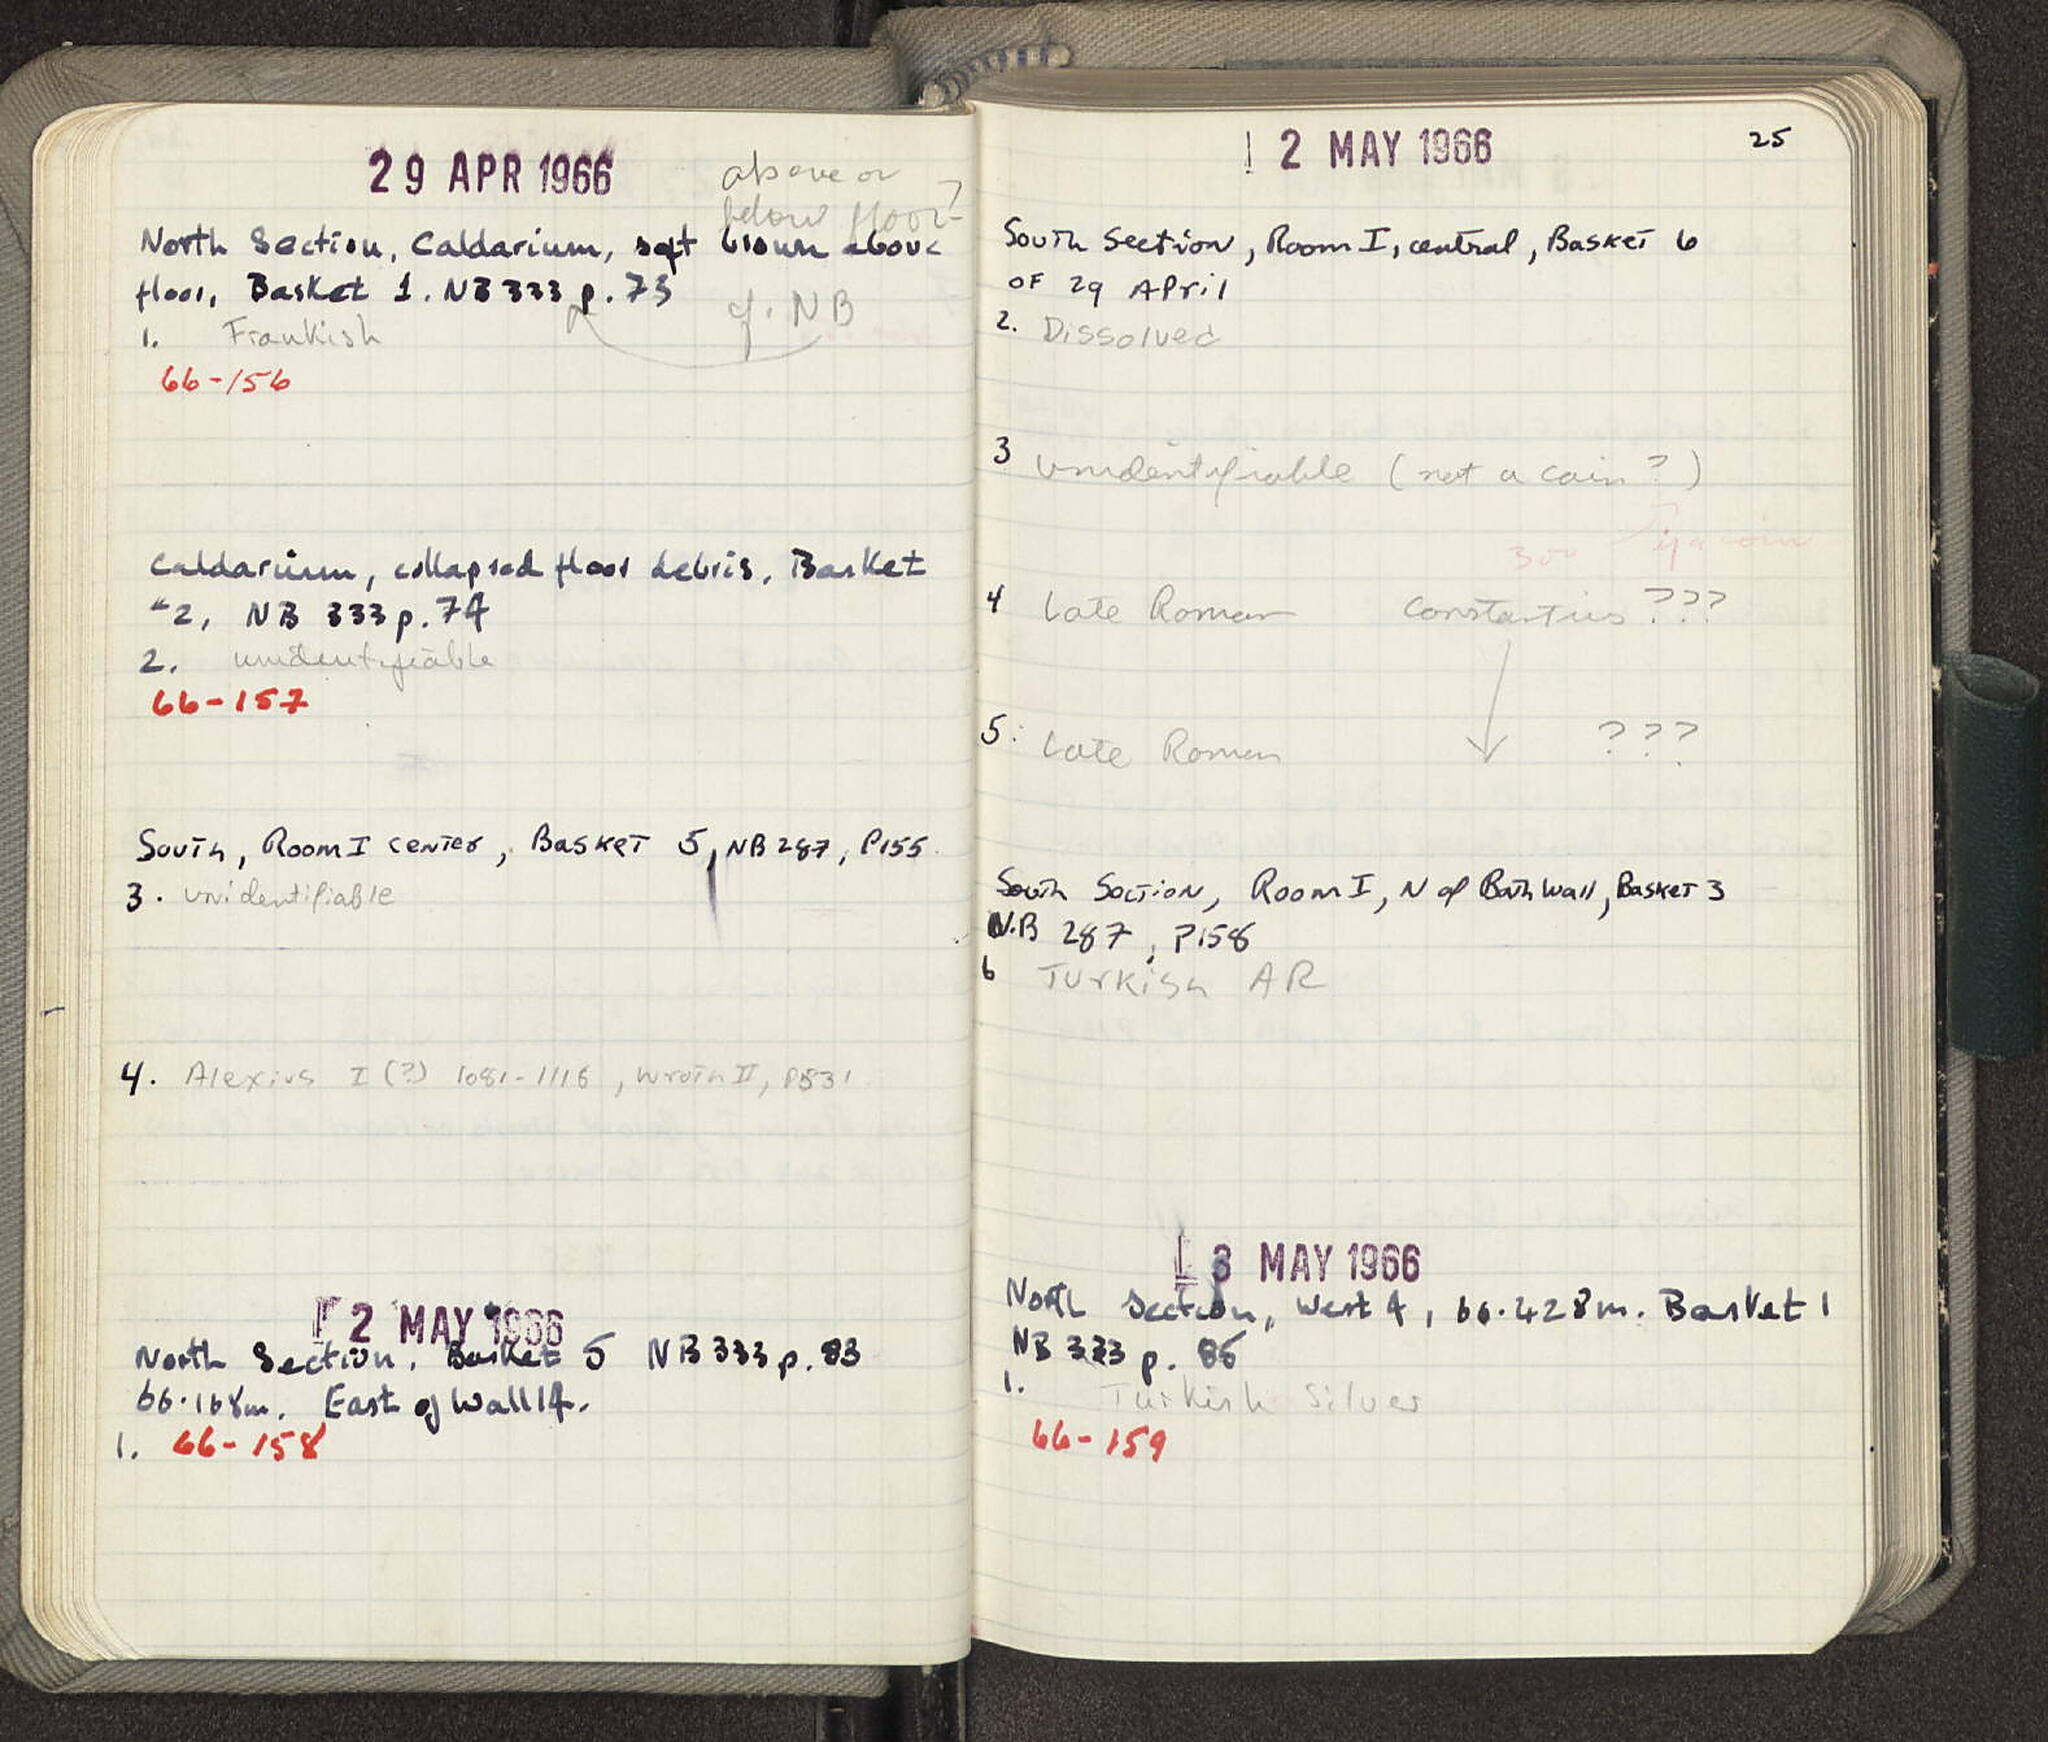 29 APR 1966
above or
below floor?
North Section, Caldarium, soft brown above
floor, Basket 1. NB 333 p. 73
cf. NB
1. Frankish
66-156
Caldarium, collapsed floor debris, Basket
#2, NB 333 p. 74
2. unidentifiable
66-157
South, Room I center, Basket 5, NB 287, P155.
3. unidentifiable
4. Alexius I (?) 1081-1116, Wroth II, P531
2 MAY 1966
North Section. Basket 5 NB 333 p. 83
66.168m. East of Wall 14.
1. 66-158
2 MAY 1966
25
South Section, Room I, central, Basket 6
OF 29 April
2. Dissolved
3 unidentifiable (not a coin?)
if a coin
4 Late Roman Constantius ???
5. Late Roman ???
South Section, Room I, N of Bath Wall, Basket 3
N.B 287, P158
6 Turkish AR
3 MAY 1966
North Section, West 4, 66.428m. Basket 1
NB 333 p. 86
1. Turkish Silver
66-159